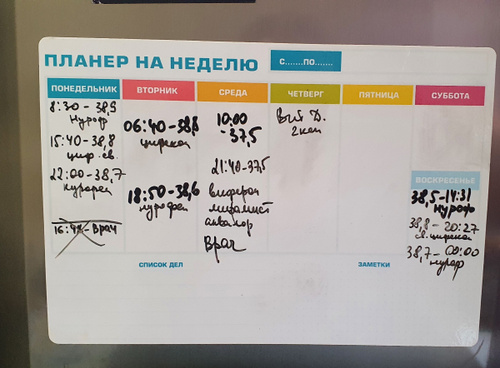 ПЛАНЕР НА НЕДЕЛЮ
С.......ПО.......
ПОНЕДЕЛЬНИК
8:30-38,9
Нуроф
15:40-38,8
циф.св.
22:00-38,7
нурофен
16:48-Врач
ВТОРНИК
06:40-38,8
18:50-38,6
нурофен
СРЕДА
10:00
-37,5
21:40-37,5
виферон
мирамист
аквалор
Врач
ЧЕТВЕРГ
Вит Д.
2 кап
ПЯТНИЦА
СУББОТА
ВОСКРЕСЕНЬЕ
38,5-14:31
нуроф
38,8-20:27
38,7-00:00
нуроф
СПИСОК ДЕЛ
ЗАМЕТКИ